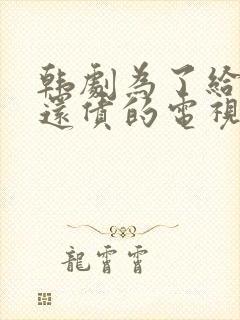 韩劇為了給
還債的電視
龍霄霄